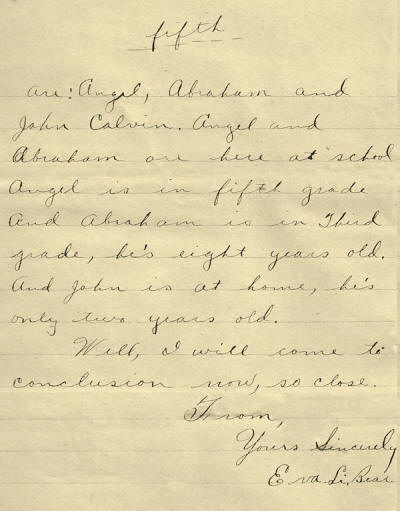 fifth
are: Angel, Abraham and
John Calvin. Angel and
Abraham are here at school
Angel is in fifth grade
And Abraham is in Third
grade, he's eight years old.
And John is at home, he's
only two years old.
Well, I will come to
conclusion now, so close.
From,
Yours Sincerely
Eva Li. Bear